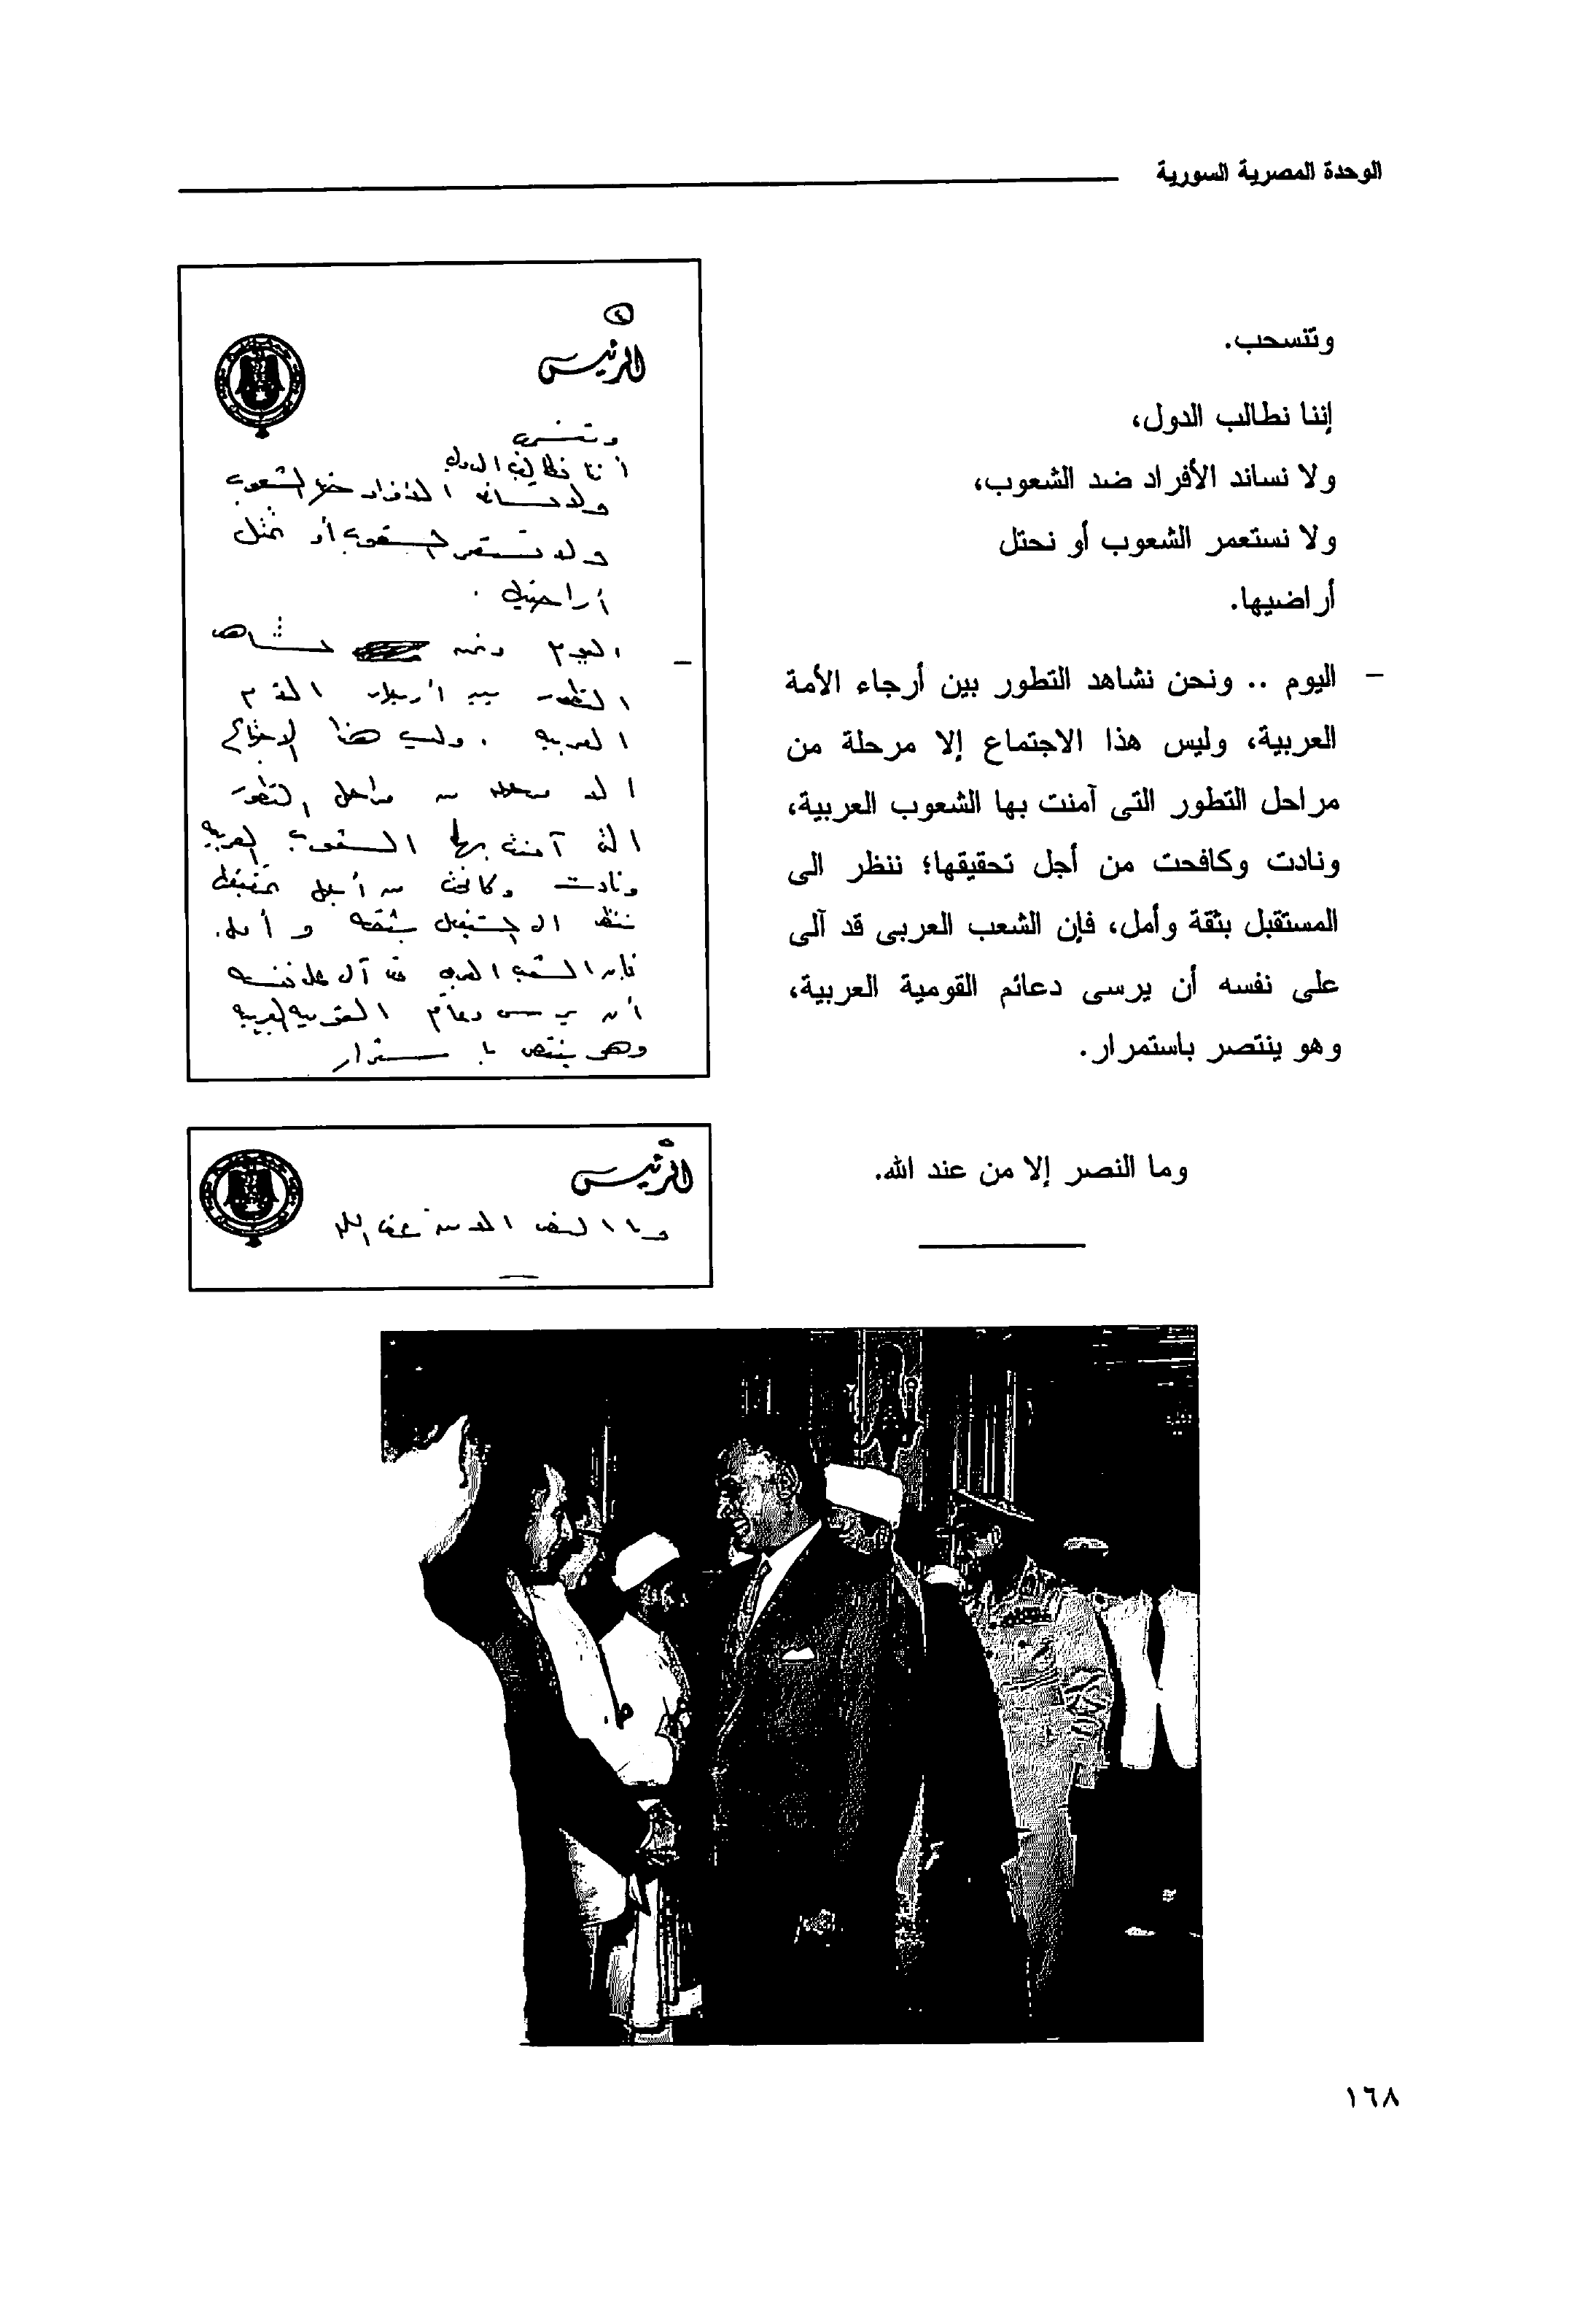 الوحدة المصرية السورية
وتنسحب.
إننا نطالب الدول،
ولا نساند الأفراد ضد الشعوب،
ولا نستعمر الشعوب أو نحتل
أراضيها.
– اليوم .. ونحن نشاهد التطور بين أرجاء الأمة
العربية، وليس هذا الاجتماع إلا مرحلة من
مراحل التطور التى آمنت بها الشعوب العربية،
ونادت وكافحت من أجل تحقيقها؛ ننظر الى
المستقبل بثقة وأمل، فإن الشعب العربى قد آلى
على نفسه أن يرسى دعائم القومية العربية،
وهو ينتصر باستمرار.
وما النصر إلا من عند الله.
٤
الرئيس
أننا نطالب الدول
ولا نساند الأفراد ضد الشعوب
ولا نستعمر الشعوب أو نحتل
أراضيها .
– اليوم ونحن نشاهد
التطور بين أرجاء
العربية . وليس هذا الاجتماع
الا مرحلة من مراحل التطور
التى آمنت بها الشعوب العربية
ونادت وكافحت من أجل تحقيقها
ننظر الى المستقبل بثقة وأمل.
فإن الشعب العربى قد آلى على نفسه
أن يرسى دعائم القومية العربية
وهو ينتصر باستمرار
٥
الرئيس
وما النصر الا من عند الله
١٦٨